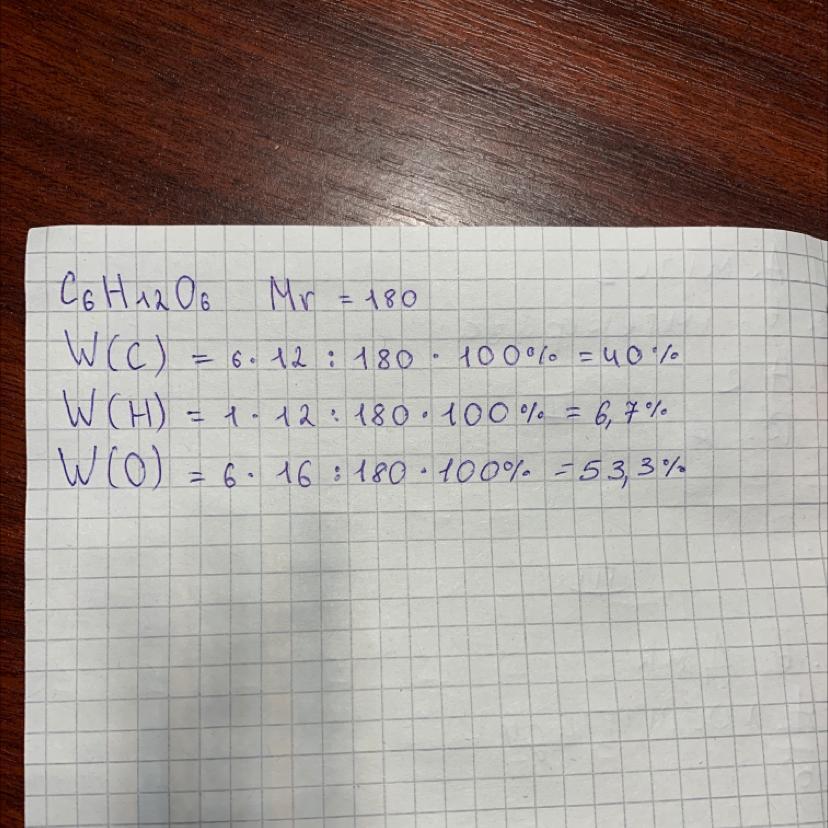 C₆H₁₂O₆ Mr = 180
W(C) = 6 · 12 : 180 · 100% = 40%
W(H) = 1 · 12 : 180 · 100% = 6,7%
W(O) = 6 · 16 : 180 · 100% = 53,3%